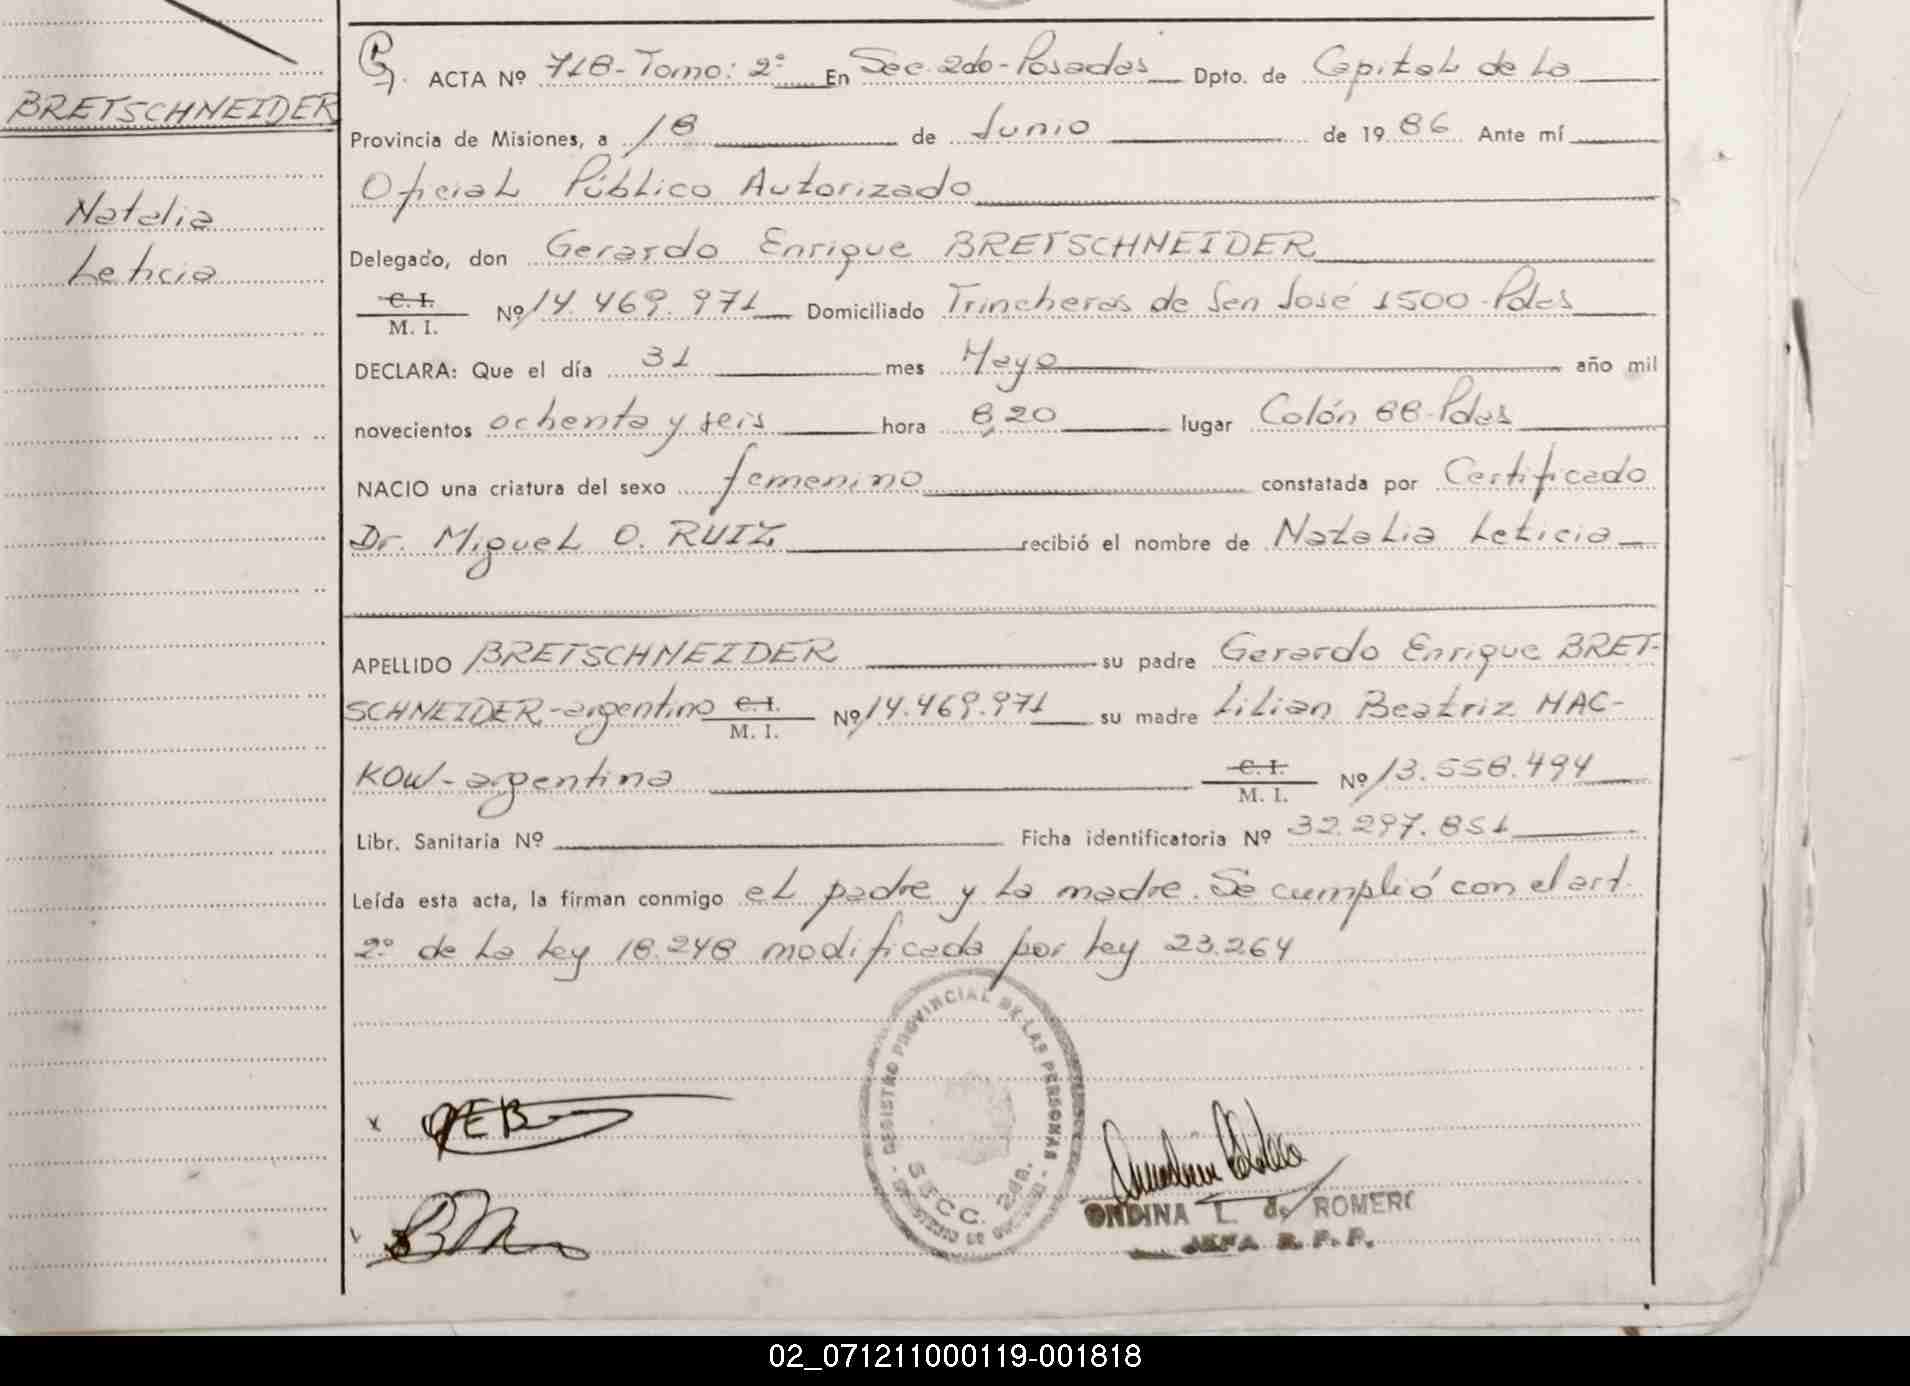 BRETSCHNEIDER
Natalia
Leticia
ACTA Nº 718-Tomo: 2º En Sec. 2do-Posadas Dpto. de Capital de La
Provincia de Misiones, a 18 de Junio de 1986 Ante mí
Oficial Público Autorizado
Delegado, don Gerardo Enrique BRETSCHNEIDER
C. I.
M. I. Nº 14.469.971 Domiciliado Trincheras de San José 1500-Pdas
DECLARA: Que el día 31 mes Mayo año mil
novecientos ochenta y seis hora 8,20 lugar Colón 88-Pdas
NACIO una criatura del sexo femenino constatada por Certificado
Dr. Miguel O. RUIZ recibió el nombre de Natalia Leticia
APELLIDO BRETSCHNEIDER su padre Gerardo Enrique BRET-
SCHNEIDER-argentino C. I. M. I. Nº 14.469.971 su madre Lilian Beatriz MAC-
KOW-argentina C. I. M. I. Nº 13.558.494
Libr. Sanitaria Nº Ficha identificatoria Nº 32.297.851
Leída esta acta, la firman conmigo el padre y la madre. Se cumplió con el art.
2º de la ley 18.248 modificada por ley 23.264
REGISTRO PROVINCIAL DE LAS PERSONAS
SECC.
GEB
ONDINA L. de ROMERO
JEFA R. P. P.
02_071211000119-001818